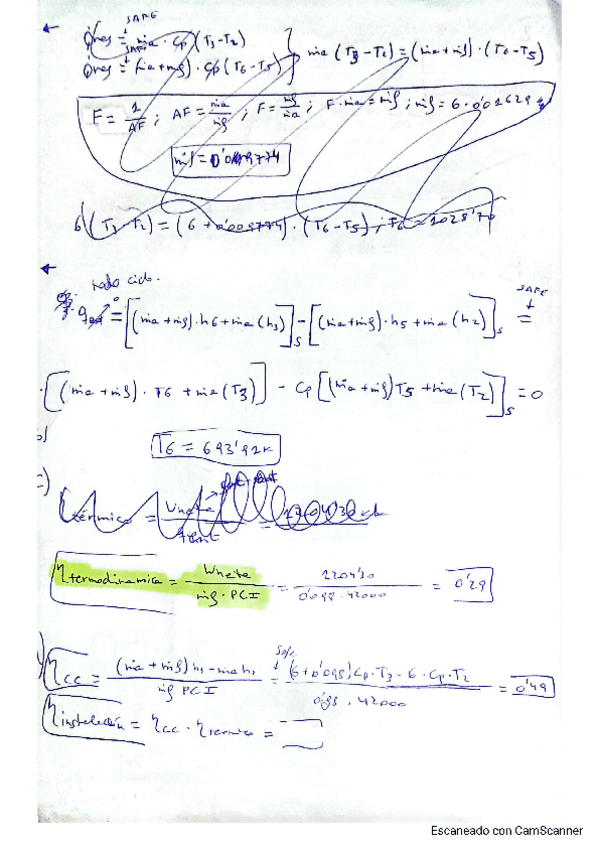 SAFE
Qres = ṁa · Cp (T3-T2)
Qres = (ṁa+ṁf) · Cp (T6-T5)
ṁa (T3-T2) = (ṁa+ṁf) · (T6-T5)
F = 1/AF ; AF = ṁa/ṁf ; F = ṁf/ṁa ; F · ṁa = ṁf ; ṁf = 6 · 0'01629
ṁf = 0'09774
6 (T3-T2) = (6 + 0'09774) · (T6-T5) ; T6 = 1028'70
todo ciclo.
= [(ṁa+ṁf) · h6 + ṁa (h3)]s - [(ṁa+ṁf) · h5 + ṁa (h2)]s =
SAFE
[(ṁa+ṁf) · T6 + ṁa (T3)] - Cp [(ṁa+ṁf) T5 + ṁa (T2)]s = 0
T6 = 693'92K
ηtérmico = Wneto
ηtermodinamica = Wneto / ṁf · PCI = 1204'30 / 0'098 · 42000 = 0'29
ηcc = (ṁa + ṁf) h3 - ṁa h2 / ṁf PCI = (6+0'098) Cp · T3 - 6 · Cp · T2 / 0'98 · 42000 = 0'49
ηinstalación = ηcc · ηtermico =
Escaneado con CamScanner